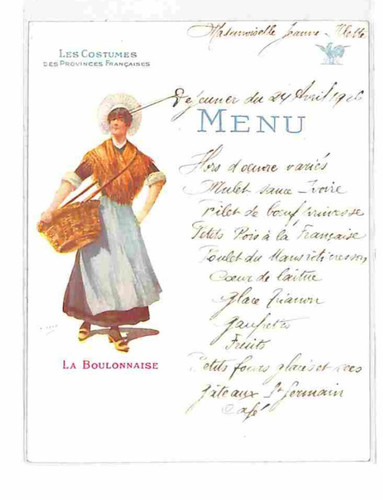 Mademoiselle Jeanne
LES COSTUMES
DES PROVINCES FRANÇAISES
Déjeuner du 24 Avril
MENU
Hors d'œuvre variés
Mulet sauce Ivoire
Filet de bœuf Princesse
Petits Pois à la Française
Poulet du Mans rôti cresson
Cœur de laitue
Glace Trianon
Gaufrettes
Fruits
Petits fours glacés et secs
Gâteaux St Germain
Café
LA BOULONNAISE